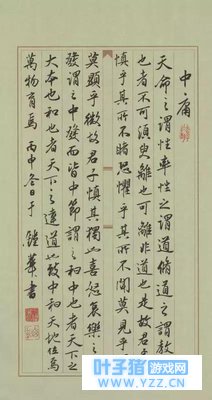 中庸
天命之謂性率性之謂道脩道之謂教
也者不可須臾離也可離非道也是故君子
慎乎其所不睹恐懼乎其所不聞莫見乎
莫顯乎微故君子慎其獨也喜怒哀樂之
發謂之中發而皆中節謂之和中也者天下之
大本也和也者天下之達道也致中和天地位焉
萬物育焉 丙申冬日于 華書
叶子猪游戏网
WWW.YZZ.CN